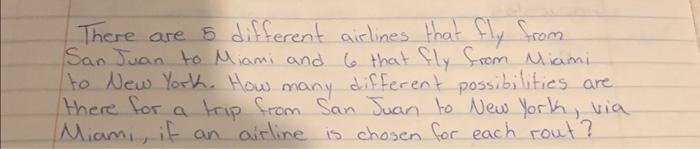 There are 5 different airlines that fly from
San Juan to Miami and 6 that fly from Miami
to New York. How many different possibilities are
there for a trip from San Juan to New York, via
Miami, if an airline is chosen for each rout?